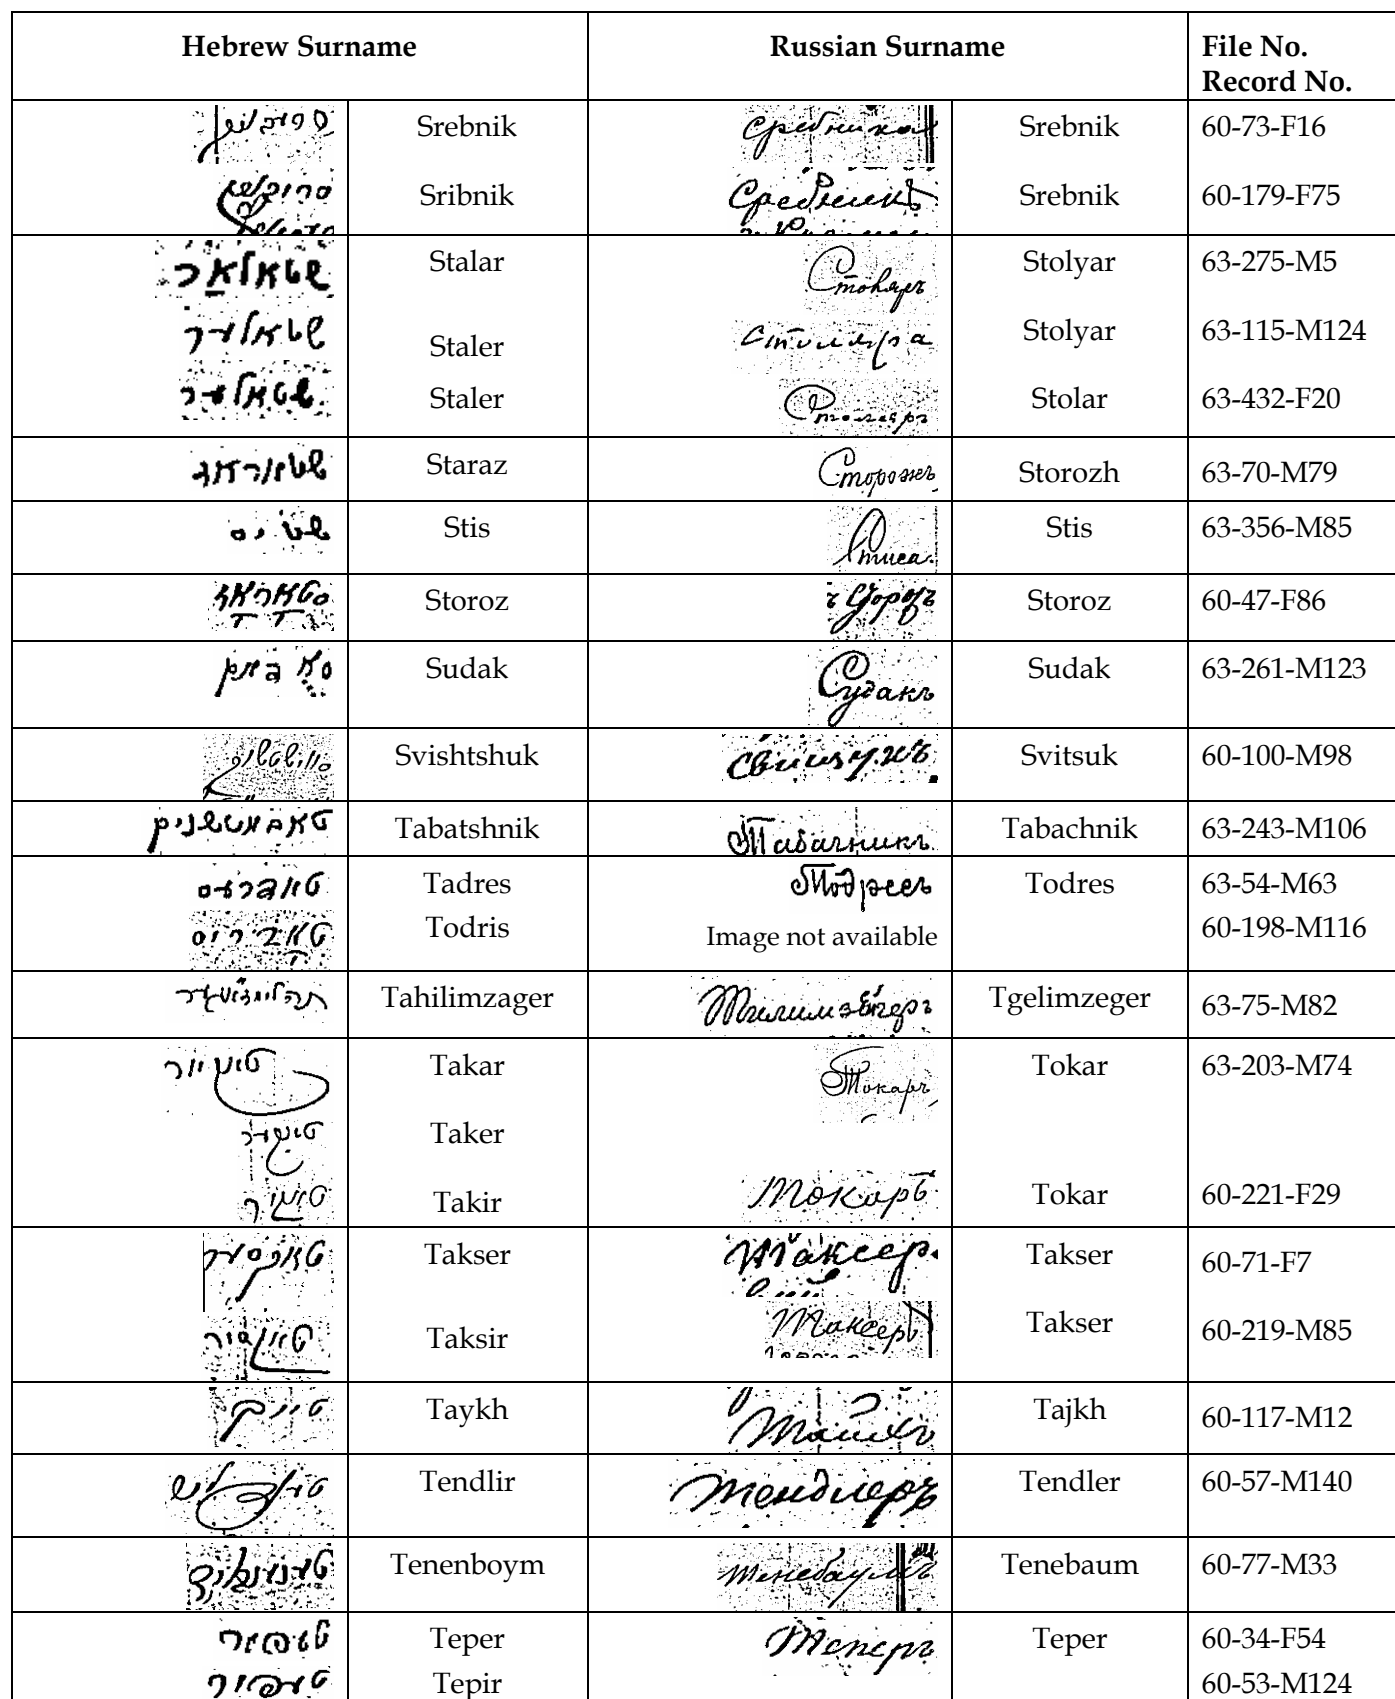 Hebrew Surname Russian Surname File No. Record No.
Srebnik Srebnik 60-73-F16
Sribnik Средникъ Srebnik 60-179-F75
שטאלאר Stalar Столяръ Stolyar 63-275-M5
שטאלער Staler Столяра Stolyar 63-115-M124
שטאלער Staler Столяръ Stolar 63-432-F20
Staraz Сторожъ Storozh 63-70-M79
Stis Стиса Stis 63-356-M85
סטאראז Storoz Storoz 60-47-F86
Sudak Судакъ Sudak 63-261-M123
Svishtshuk Svitsuk 60-100-M98
טאבאטשניק Tabatshnik Табачникъ Tabachnik 63-243-M106
טאדרעס Tadres Тодресъ Todres 63-54-M63
טאדריס Todris Image not available 60-198-M116
Tahilimzager Tgelimzeger 63-75-M82
Takar Токаръ Tokar 63-203-M74
Taker
Takir Токаръ Tokar 60-221-F29
טאקסער Takser Таксер Takser 60-71-F7
Taksir Таксеръ Takser 60-219-M85
Taykh Тайхъ Tajkh 60-117-M12
Tendlir Тендлеръ Tendler 60-57-M140
Tenenboym Тенебаумъ Tenebaum 60-77-M33
Teper Теперъ Teper 60-34-F54
טעפיר Tepir 60-53-M124